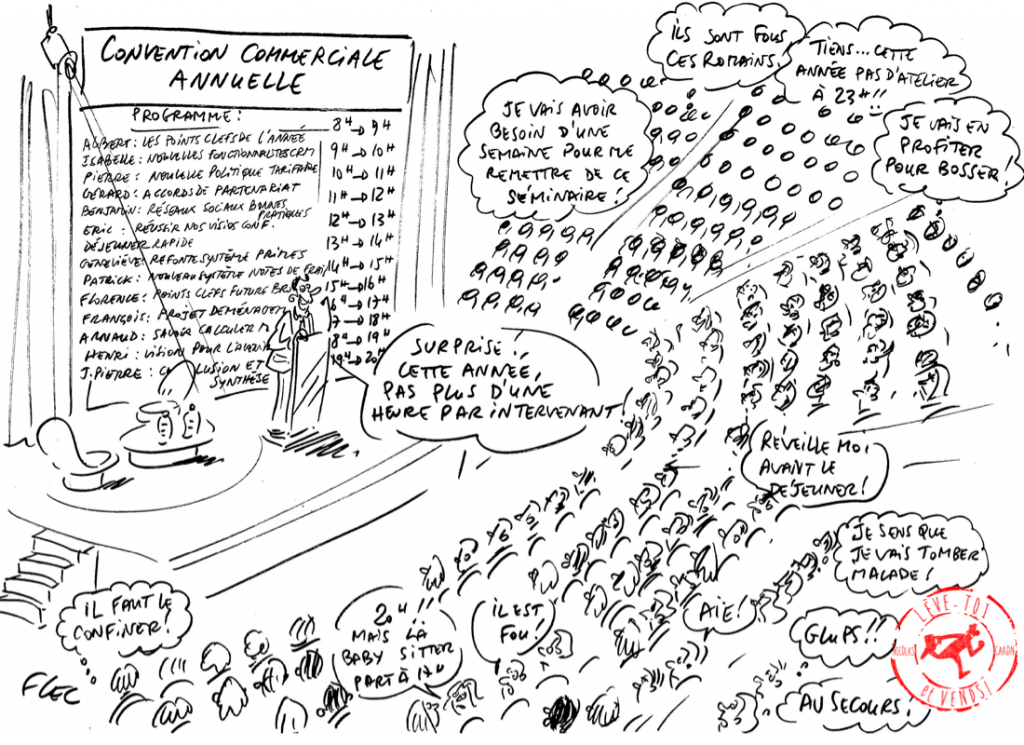 CONVENTION COMMERCIALE
ANNUELLE
PROGRAMME:
ALBERT: LES POINTS CLEFS DE L'ANNÉE 8H→9H
ISABELLE: NOUVELLES FONCTIONNALITES CRM 9H→10H
PIERRE: NOUVELLE POLITIQUE TARIFAIRE 10H→11H
GÉRARD: ACCORDS DE PARTENARIAT 11H→12H
BENJAMIN: RÉSEAUX SOCIAUX BONNES
PRATIQUES
ERIC: REUSSIR NOS VISIOS CONF. 12H→13H
DÉJEUNER RAPIDE 13H→14H
GENEVIÈVE: REFONTE SYSTÈME PRIMES 14H→15H
PATRICK: NOUVEAU SYSTÈME NOTES DE FRAI 15H→16H
FLORENCE: POINTS CLEFS FUTURE BR 16H→17H
FRANÇOIS: PROJET DEMÉNAGEM 18H
ARNAUD: SAVOIR CALCULER 19H
HENRI: VISION POUR L'AVENIR 20H
J.PIERRE: CLUSION ET
SYNTHÈSE
SURPRISE!
CETTE ANNÉE,
PAS PLUS D'UNE
HEURE PAR INTERVENANT
JE VAIS AVOIR
BESOIN D'UNE
SEMAINE POUR ME
REMETTRE DE CE
SÉMINAIRE!
ILS SONT FOUS
CES ROMAINS!
TIENS... CETTE
ANNÉE PAS D'ATELIER
À 23H!!
JE VAIS EN
PROFITER
POUR BOSSER!
RÉVEILLE MOI
AVANT LE
DÉJEUNER!
JE SENS QUE
JE VAIS TOMBER
MALADE!
IL FAUT LE
CONFINER!
20H!!
MAIS LA
BABY SITTER
PART À 17H
IL EST
FOU!
AÏE!
GLUPS!!
AU SECOURS!
FLEC
LÈVE-TOI
NICOLAS CARON
et VENDS!